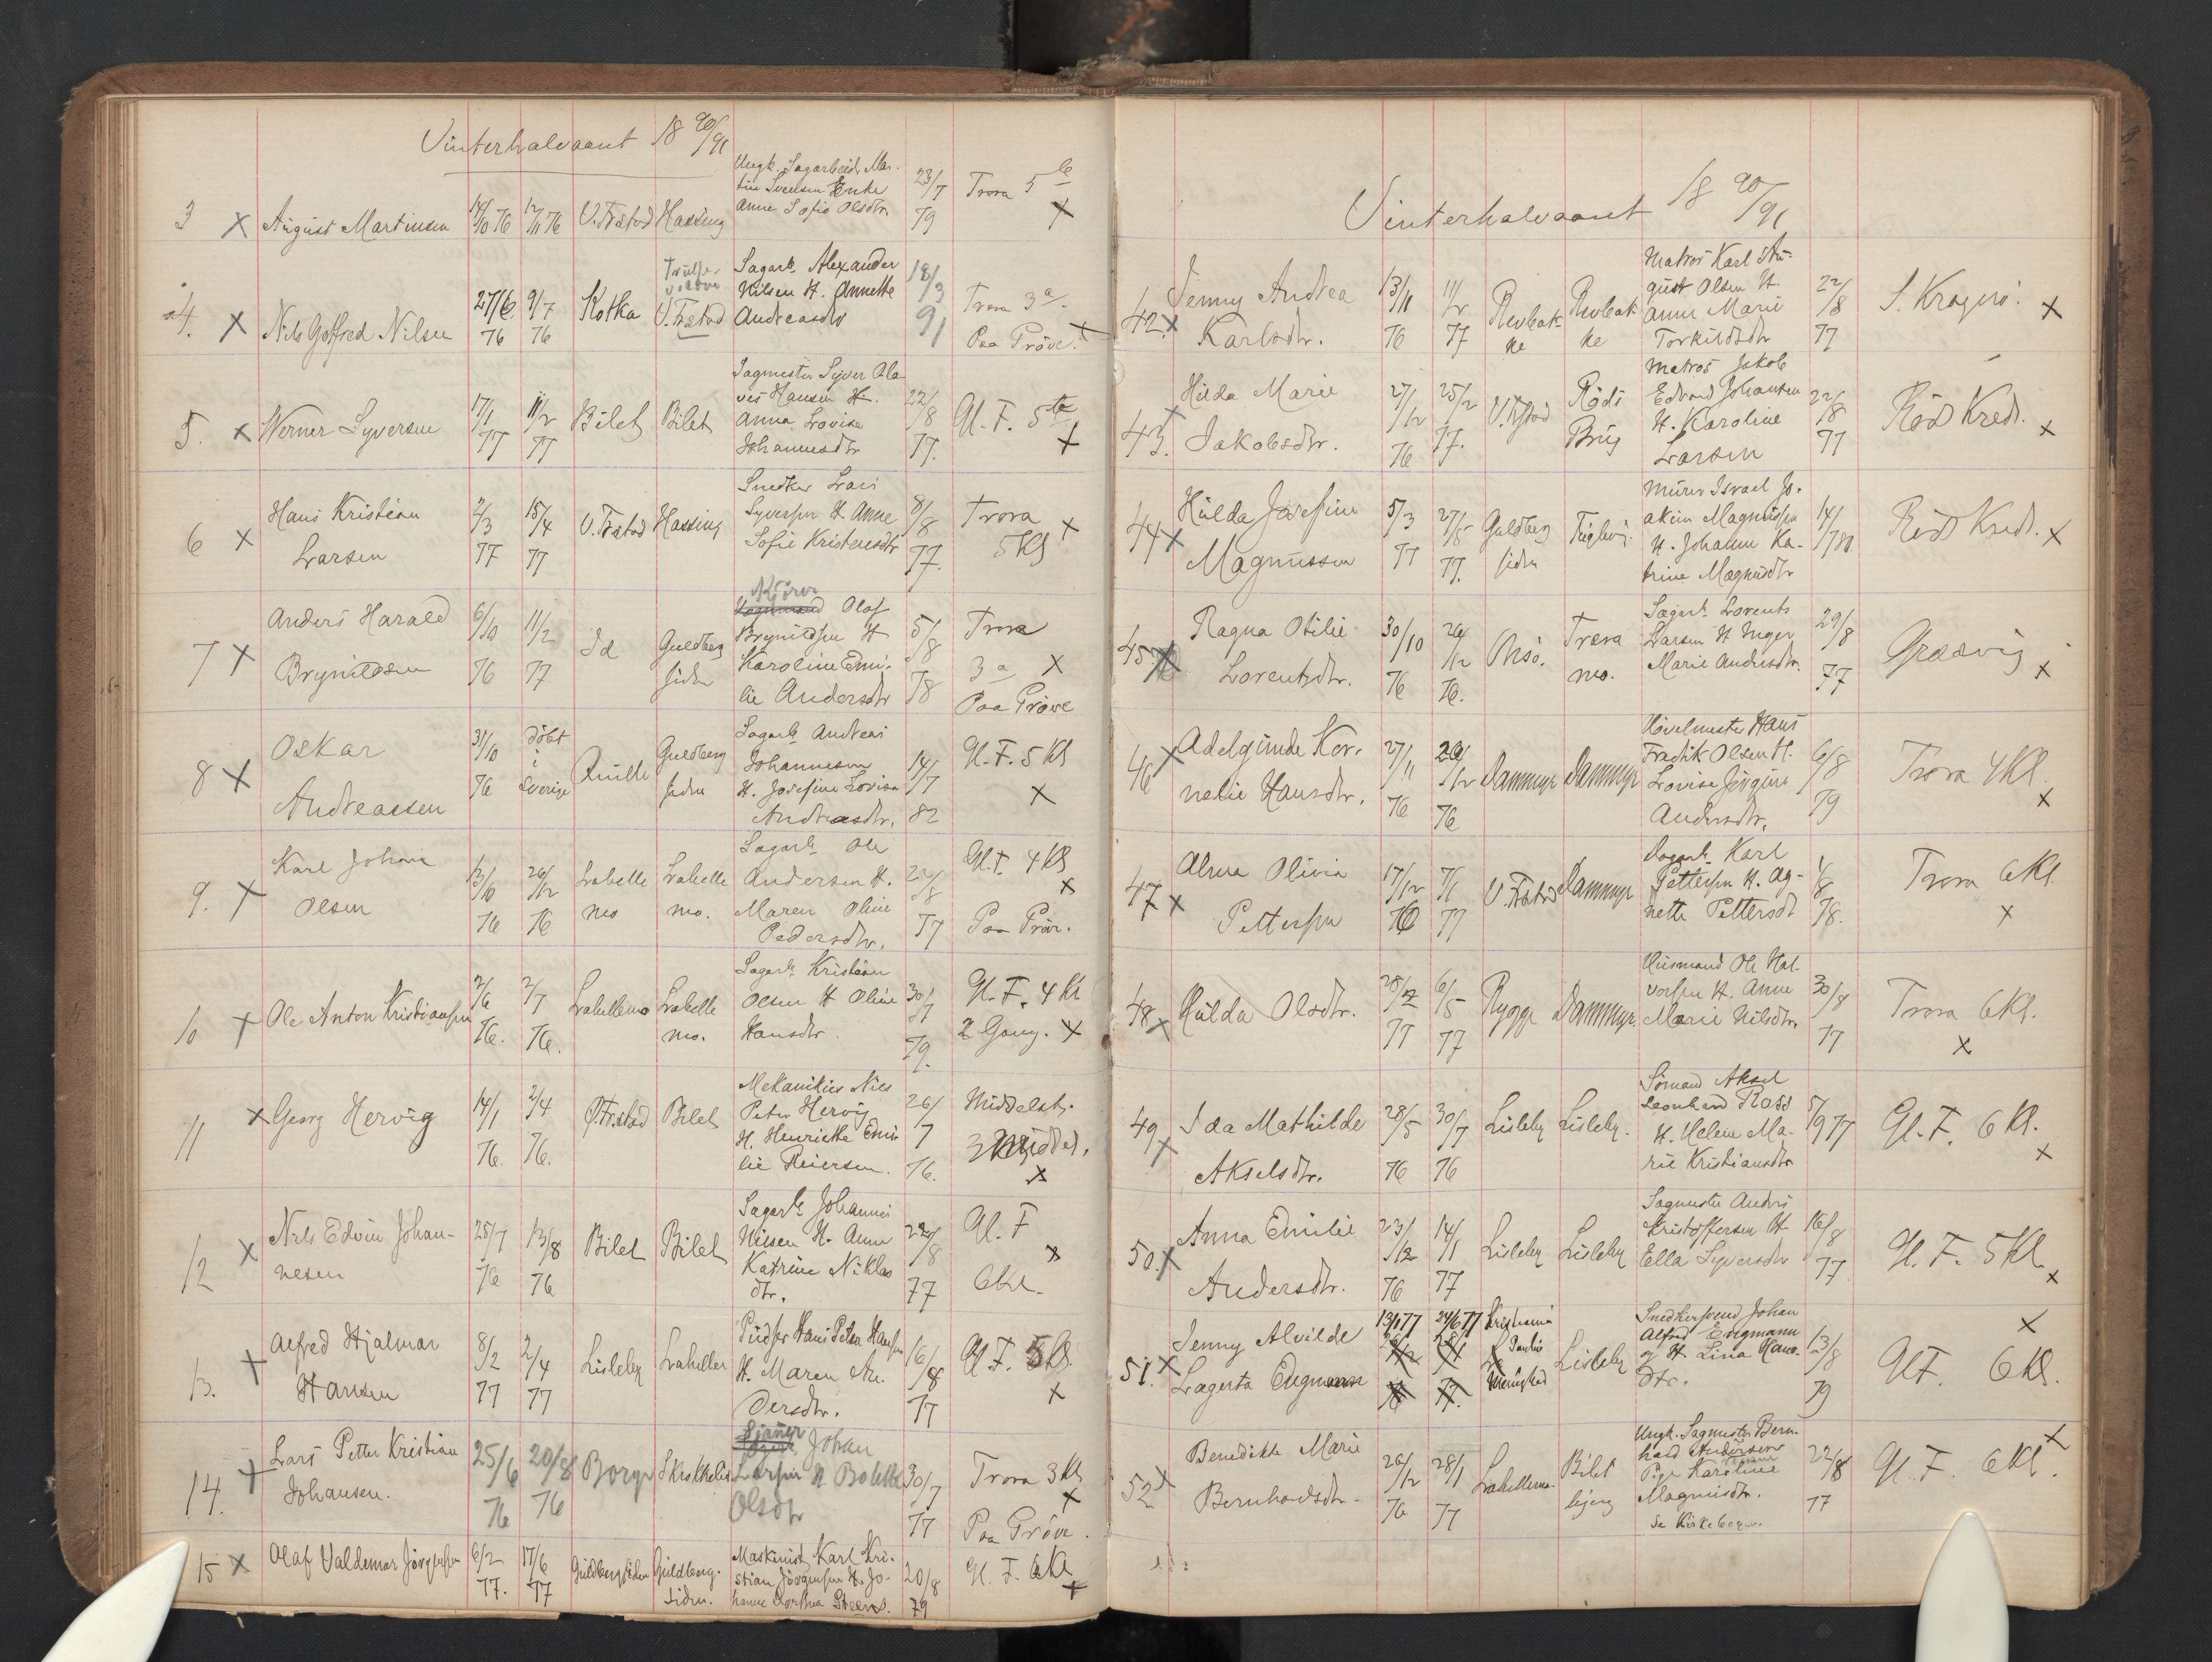 Vinterhalvaaret 18 90/91
3 x August Martinsen 14/10 76 12/11 76 V. Frstad Hassing
Ungk. Sagarbeid. Mar-
tin Svensen Enke
Anne Sofie Olsdtr.
23/7 79
Trora 5 kl
x
4. x Nils Gotfred Nilsen 27/6 76 9/7 76 Kotka
V. Frstad
Sagarb. Alexander
Nilsen H. Annette
Andreasdtr
18/3 91
Trora 3 a.
Paa Prøve. x
5. x Werner Syversen 17/1 77 11/2 77 Bilet Bilet
Sagmester Syver Ola-
ves Hansen H.
Anna Lovise
Johannesdtr
22/8 77.
Gl. F. 5te
x
6 x Hans Kristian
Larsen
2/3 77 15/4 77 V. Frstad Hassing
Snedker Lars
Syversen H. Anne
Sofie Kristensdtr
8/8 77.
Trora x
5 Kl
7 x Anders Harald
Brynildsen
6/10 76 11/2 77 Id Guldberg
siden
Kjører
Olaf
Brynildsen H
Karoline Emi-
lie Andersdtr
5/8 78
Trora
3 a x
Paa Prøve
8 x Oskar
Andreassen
31/10 76 døbt
i
Sverige
Guldberg
siden
Sagarb. Andreas
Johannesen
H. Josefine Lovise
Andreasdtr.
14/7 82
Gl. F. 5 Kl
x
9. x Karl Johan
Olsen
13/10 76 26/12 76 Labelle
mo
Labelle
mo.
Sagarb. Ole
Andersen H.
Maren Oline
Pedersdtr.
22/8 77
Gl. F. 4 Kl
x
Paa Prøv.
10 x Ole Anton Kristiansen 2/6 76. 2/7 76. Labellemo Labelle
mo.
Sagarb. Kristian
Olsen H Oline
Hansdtr.
30/7 79.
Gl. F. 4 Kl
2 Gang. x
11 x Georg Hervig 14/1 76. 2/4 76. Frstad Bilet
Mekanikus Nils
Peter Hervig
H. Henriette Emi-
lie Reiersen.
26/7 76.
Middelst.
3 Middel.
x
12 x Nils Edvin Johan-
nesen
25/7 76 13/8 76 Bilet Bilet
Sagarb. Johannes
Nilsen H. Anne
Katrine Niklas
dtr.
22/8 77
Gl. F
x
6 Kl.
13. x Alfred Hjalmar
Hansen
8/2 77 2/4 77 Lisleby Labellen
Pudser Hans Peter Hansen
H. Maren An-
dersdtr.
16/8 77
Gl. F. 5 Kl
x
14. x Lars Petter Kristian
Johansen.
25/6 76 20/8 76 Borge
Johan
Larsen H Bolette
Olsdtr
30/7 77
Trora 3 Kl
x
Paa Prøve.
15 x Olaf Valdemar Jørgensen 6/2 77. 17/6 77 Guldbergsiden Guldberg-
siden.
Maskinist Karl Kri-
stian Jørgensen H. Jo-
hanne Dorthea Steens.
20/8 79
Gl. F. 6 Kl
x
Vinterhalvaaret 18 90/91
42. x Jenny Andrea
Karlsdtr.
13/11 76 11/2 77 Revbak-
ke
Revbak-
ke
Matros Karl Au-
gust Olsen H.
Anne Marie
Torkildsdtr
22/8 77
S. Kragerø. x
43. x Hilda Marie
Jakobsdtr.
27/12 76 25/2 77. V. Frstad Røds
Brug
Matros Jakob
Edvard Johansen
H. Karoline
Larsen
22/8 77
Rød Kreds. x
44 x Hulda Josefine
Magnussen
5/3 77 27/5 77. Guldberg
siden
Murer Israel Jo-
akim Magnussen
H. Johanne Ka-
trine Magnusdtr
14/7 80
Rød Kreds. x
45 x Ragna Otilie
Lorentsdtr.
30/10 76 26/12 76. Onsø. Trora
mo.
Sagarb. Lorents
Larsen H Inger
Marie Andersdtr.
29/8 77
Græsvig x
46 x Adelgunde Kor-
nelie Hansdtr.
27/11 76 26/12 76 Dammyr Dammyr
Høvelmester Hans
Fredrik Olsen H.
Lovise Jørgine
Andersdtr.
6/8 79
Trora 4 Kl.
x
47 x Alma Olivia
Pettersen
17/12 76 7/1 77 V. Frstad Dammyr
Sagarb. Karl
Pettersen H. Ag-
nette Pettersdt
1/8 78.
Trora 6 Kl.
x
48 x Hulda Olsdtr. 28/2 77 6/5 77 Rygge Dammyr.
Husmand Ole Hal-
vorsen H. Anne
Marie Nilsdtr.
30/8 77
Trora 6 Kl.
x
49 x Ida Mathilde
Akselsdtr.
28/5 76 30/7 76 Lisleby Lisleby.
Sømand Aksel
Leonhard Ross
H. Helene Ma-
rie Kristiansdtr
5/9 77
Gl. F. 6 Kl.
x
50. x Anna Emilie
Andersdtr.
23/12 76 14/1 77 Lisleby Lisleby
Sagmester Anders
Kristoffersen H
Ella Syversdtr
16/8 77
Gl. F. 5 Kl.
x
51. x Jenny Alvilde
Lagerta Engmann
19/1 77 24/6 77 Kristiania
Paulus
Menighed
Lisleby
Snedkersvend Johan
Alfred Engmann
og H. Lina Hans-
dtr.
13/8 79
x
Gl F. 6 Kl.
52 x Benedikte Marie
Bernhardsdtr.
26/12 76 28/1 77 Labellemo Bilet
bjerg
Ungk. Sagmester Bern-
hard Andersen
Pige Karoline
Magnusdtr.
Se Kirkebogen.
22/8 77
x
Gl. F. 6 Kl.